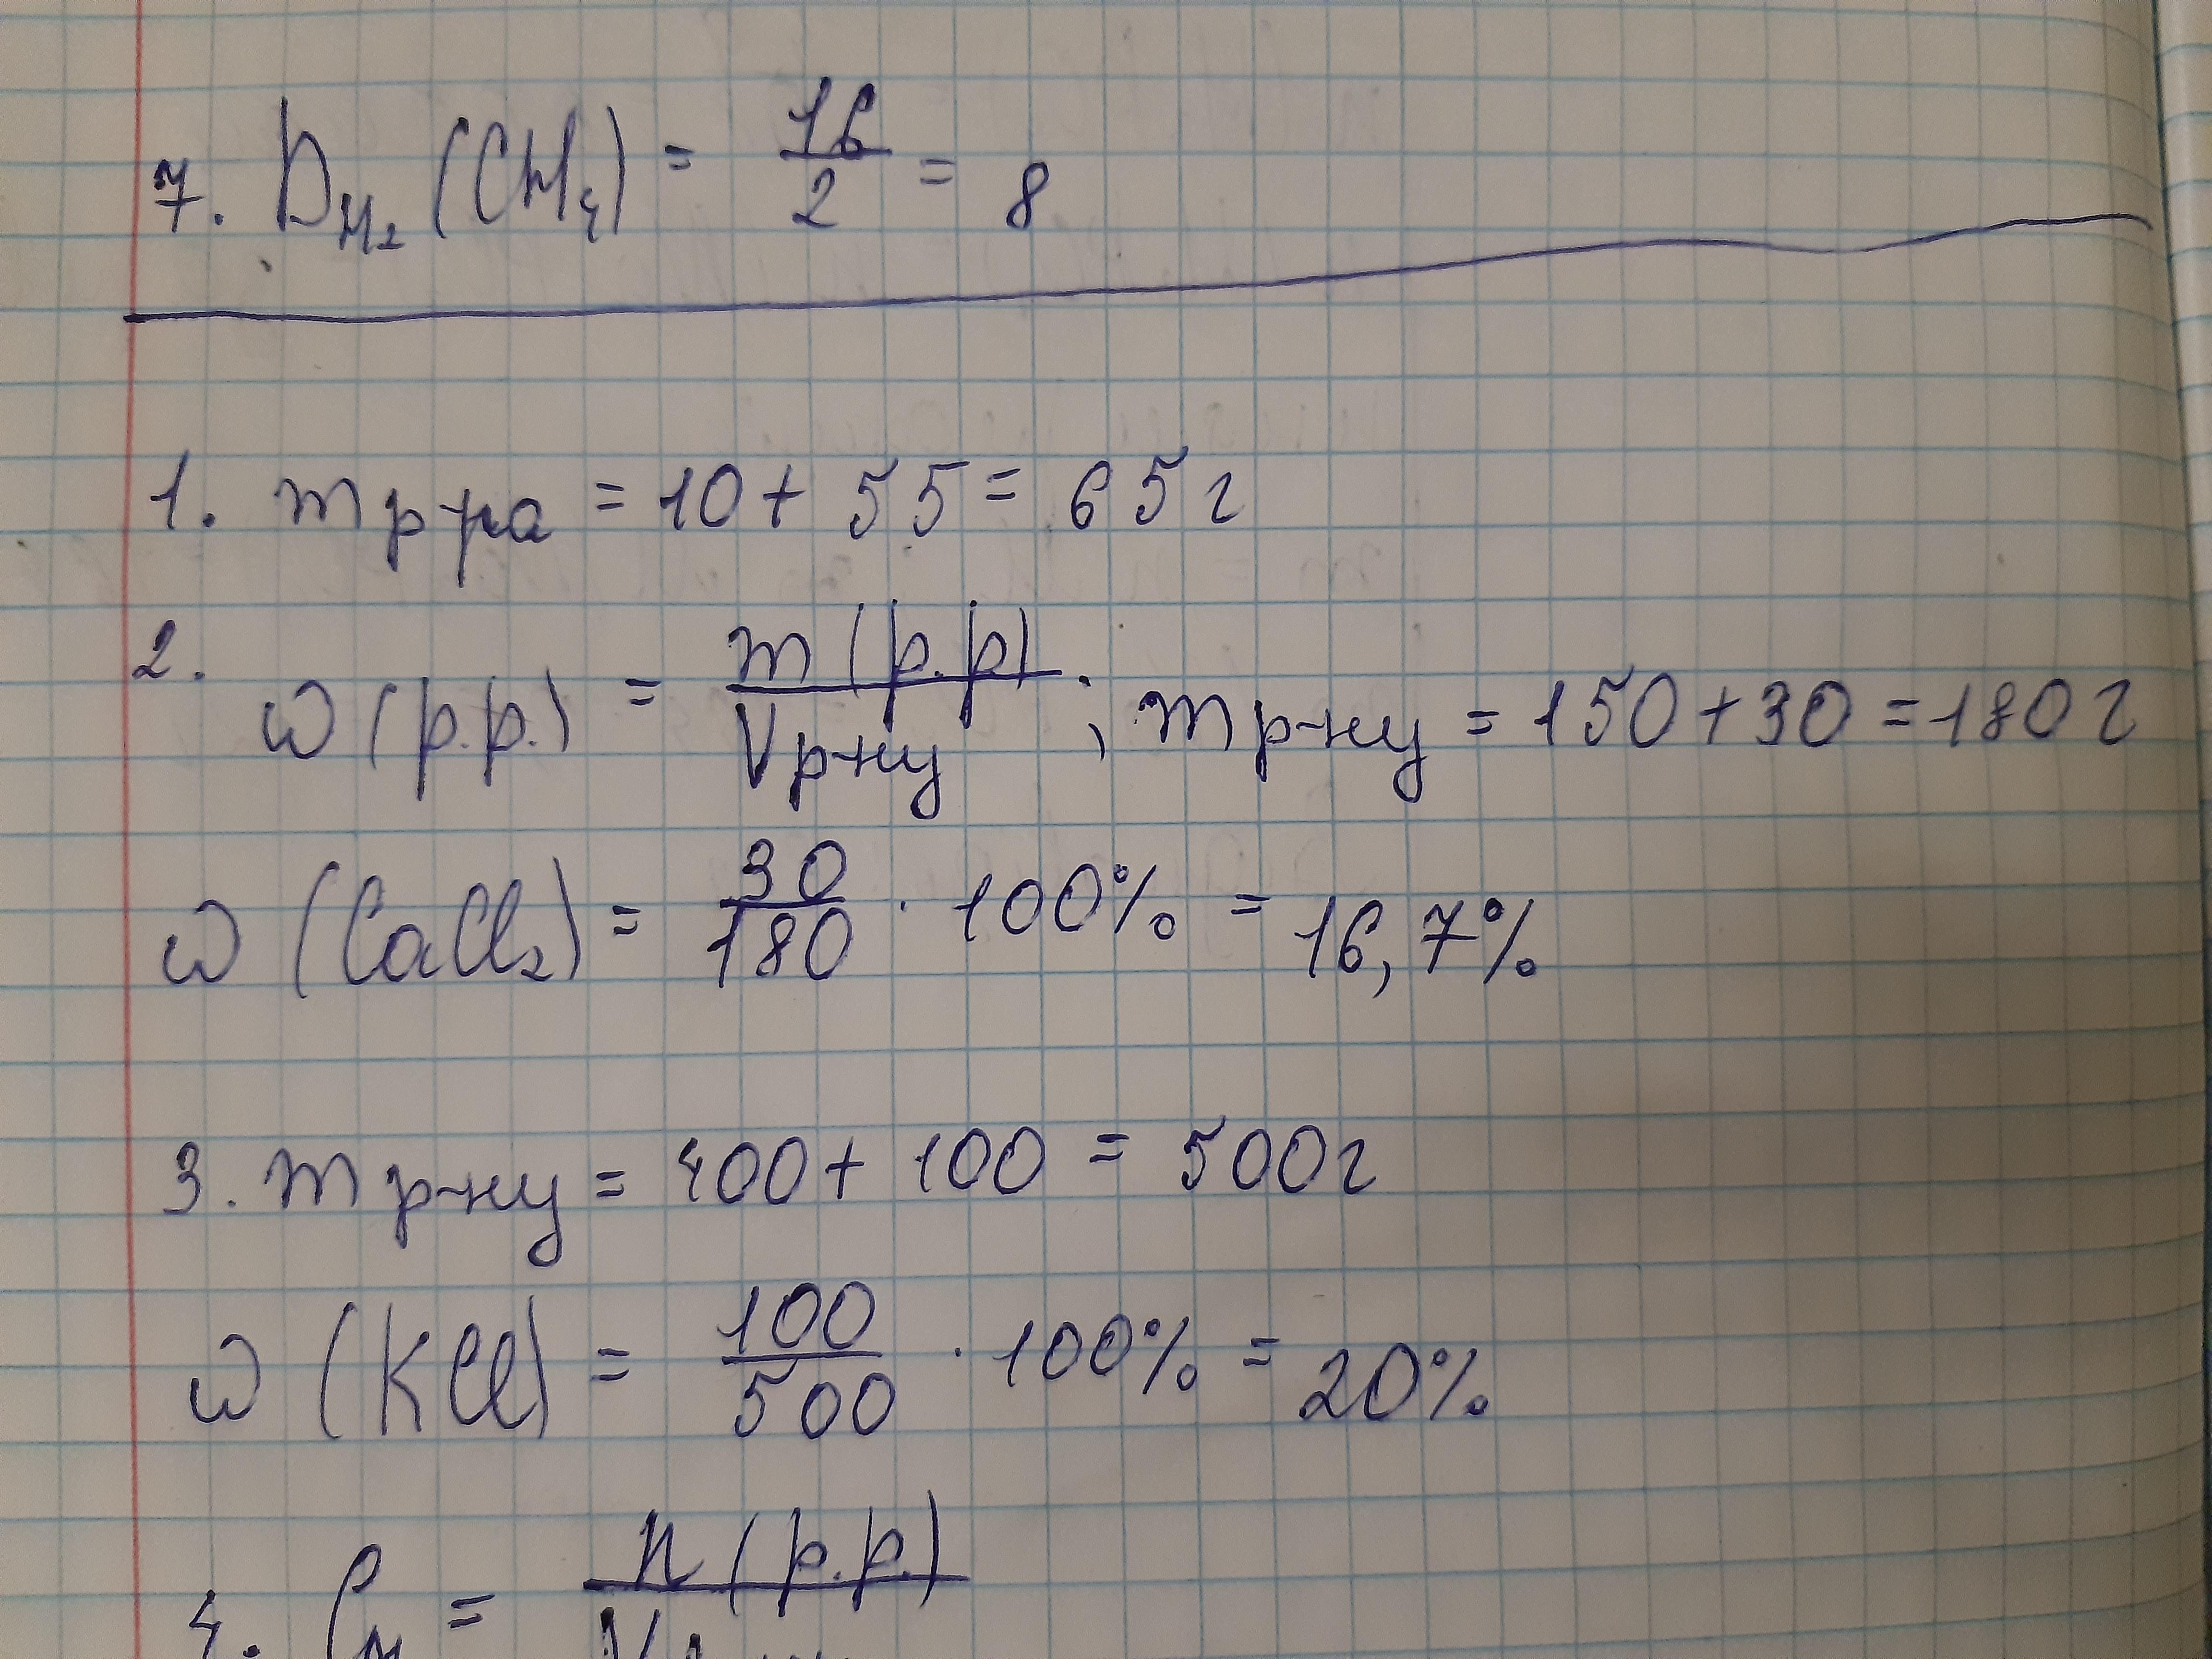 7. D_H₂ (CH₄) = 16/2 = 8
1. m р-ра = 10 + 55 = 65 г
2. ω (р.р.) = m (р.р) / V р-ну ; m р-ну = 150 + 30 = 180 г
ω (CaCl₂) = 30/180 · 100% = 16,7%
3. m р-ну = 400 + 100 = 500 г
ω (KCl) = 100/500 · 100% = 20%
4. C_м = n (р.р.) / V